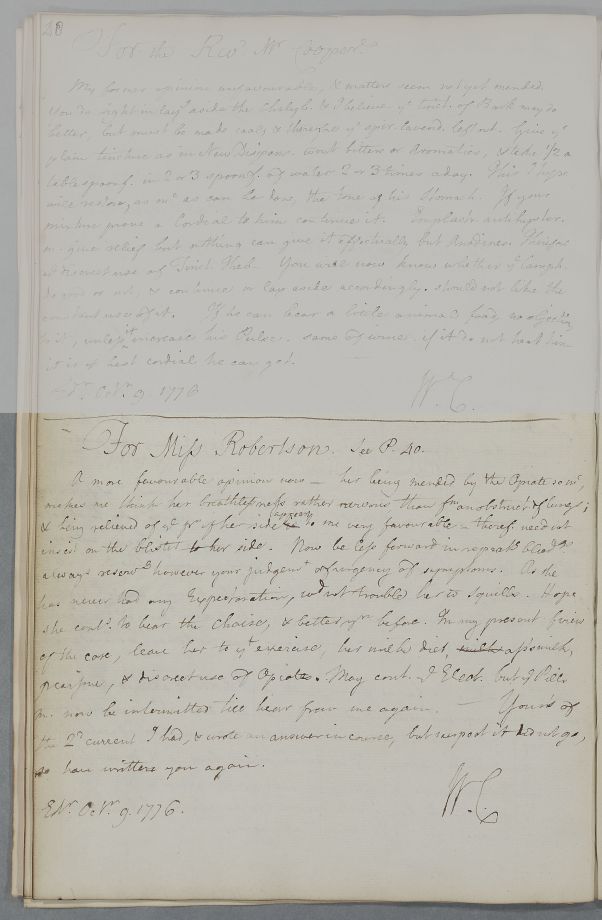 28
For the Revd. Mr. Cooper.
My former opinion unfavourable, & matters seem not yet mended.
You do right in layg. aside the & I believe ye. tinct. of Bark may do
better, but must be made & therefore ye. spir. lavend. left out. Give ye.
plain tincture as in New Dispens. wout. bitters or Aromatics, & take 1/2 a
table spoonf. in 2 or 3 spoonf. of water 2 or 3 times a day. This I hope
will restore, as mt. as can be done, the tone of his Stomach. If your
mixture prove a Cordial to him continue it. Emplastr. antihyster.
m. give relief but nothing can give it effectually but Anodines. Therefore
a discreet use of Tinct. Theb. You will now know whether ye. Camph.
do good or not, & continue or lay aside accordingly. should not like the
constant use of it. If he can bear a little animal food, no objection
to it, unless it increase his Pulse. same of wine. if it do not heat him
it is ye. best cordial he can get.
Edr. Octr. 9. 1776 W. C.
For Miss Robertson. See P. 40.
A more favourable opinion now — her being mended by the Opiate so mt.,
makes me think her breathlessness rather nervous than fm. an obstruct. of lungs;
& being relieved of ye. pn. of her side appears to me very favourable — theref. need not
insist on the blister to her side. Now be less forward in repeatg. bleedgs.
always reservg. however your judgemt. of urgency of symptoms. As she
has never had any Expectoration, wd. not trouble her to Squills. Hope
she cont. to bear the Chaise, & betters ym. before. In my present view
of the case, leave her to ye. exercise, her milk diet, milk asses milk,
& discreet use of Opiates. May cont. ye. Elect. but ye. Pills
m. now be intermitted till hear from me again. — Yours of
the 2d. current I had, & wrote an answer in course, but suspect it did not go,
so have written you again.
Edr. Octr. 9. 1776. W. C.